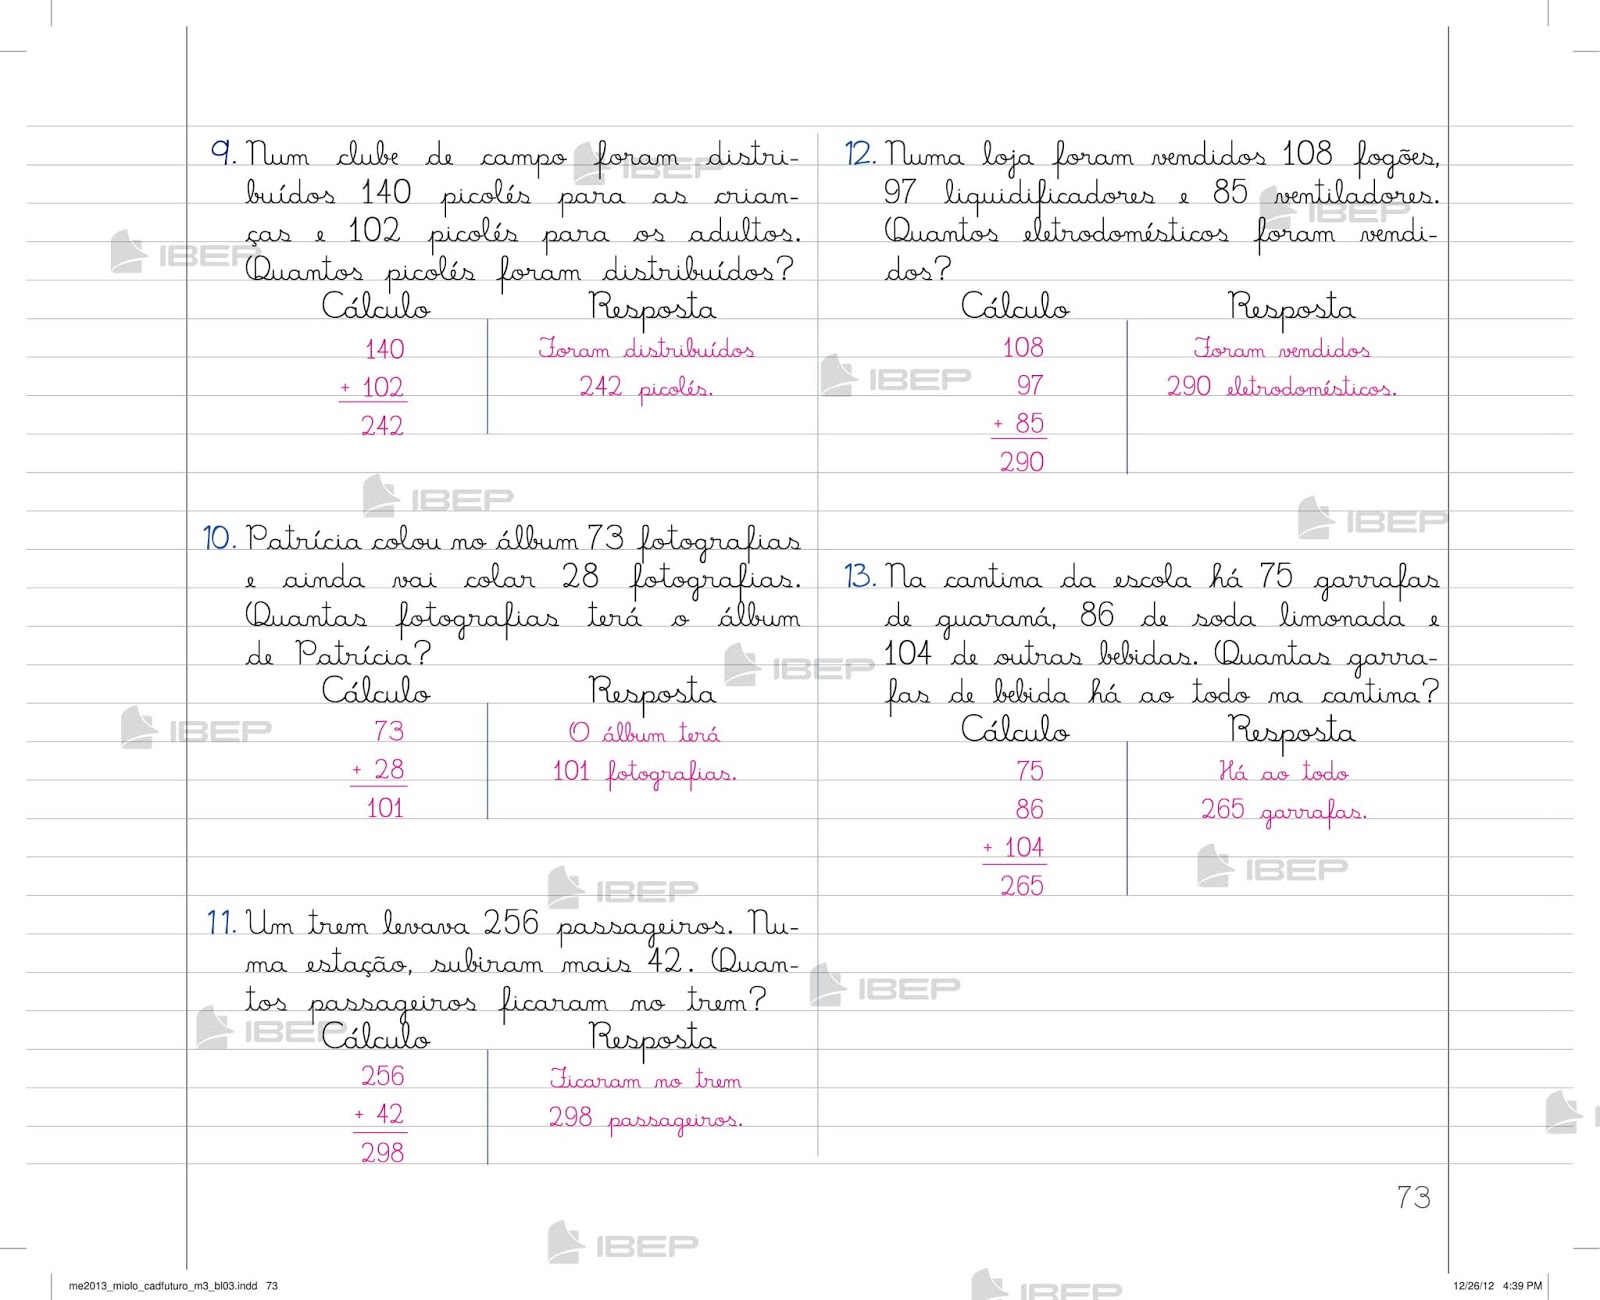 9. Num clube de campo foram distri-
buídos 140 picolés para as crian-
ças e 102 picolés para os adultos.
Quantos picolés foram distribuídos?
Cálculo Resposta
140 Foram distribuídos
+ 102 242 picolés.
242
10. Patrícia colou no álbum 73 fotografias
e ainda vai colar 28 fotografias.
Quantas fotografias terá o álbum
de Patrícia?
Cálculo Resposta
73 O álbum terá
+ 28 101 fotografias.
101
11. Um trem levava 256 passageiros. Nu-
ma estação, subiram mais 42. Quan-
tos passageiros ficaram no trem?
Cálculo Resposta
256 Ficaram no trem
+ 42 298 passageiros.
298
12. Numa loja foram vendidos 108 fogões,
97 liquidificadores e 85 ventiladores.
Quantos eletrodomésticos foram vendi-
dos?
Cálculo Resposta
108 Foram vendidos
97 290 eletrodomésticos.
+ 85
290
13. Na cantina da escola há 75 garrafas
de guaraná, 86 de soda limonada e
104 de outras bebidas. Quantas garra-
fas de bebida há ao todo na cantina?
Cálculo Resposta
75 Há ao todo
86 265 garrafas.
+ 104
265
73
me2013_miolo_cadfuturo_m3_bl03.indd 73
12/26/12 4:39 PM
IBEP
IBEP
IBEP
IBEP
IBEP
IBEP
IBEP
IBEP
IBEP
IBEP
IBEP
IBEP
IBEP
IBEP